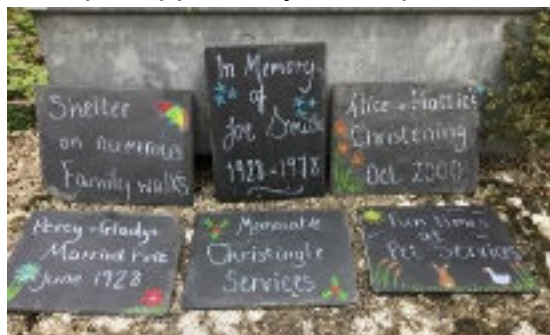 Shelter
on numerous
Family walks
In Memory
of
Joe Smith
1928-1978
Alice + Hattie's
Christening
Oct 2000
Percy + Gladys
Married Here
June 1928
Memorable
Christingle
Services
Fun times
at
Pet Services